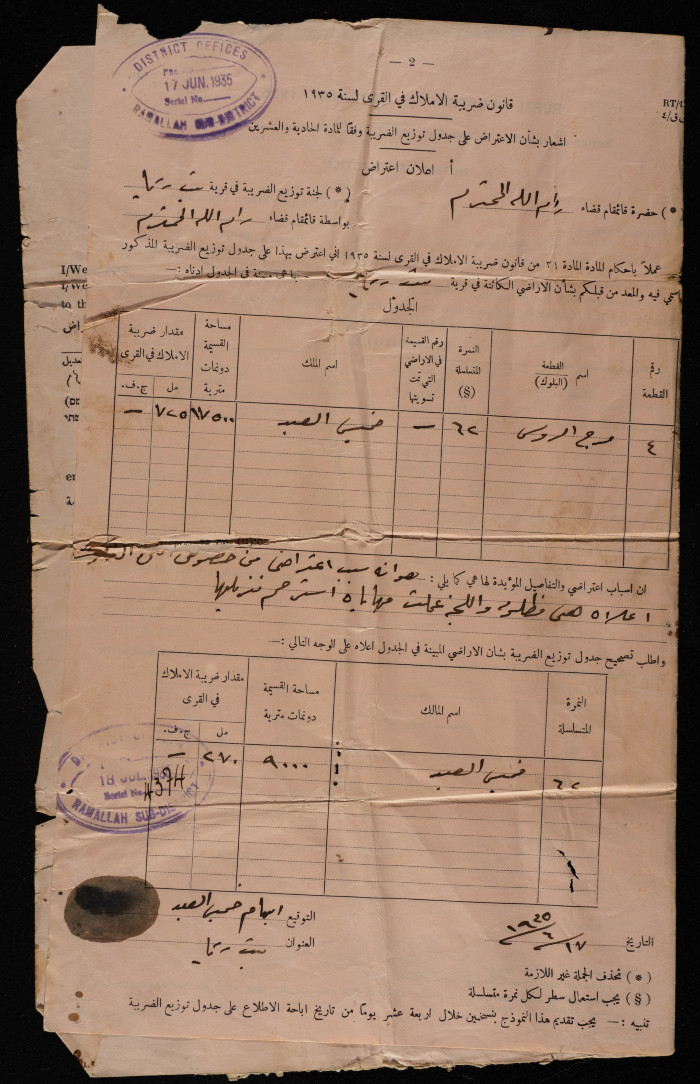 — 2 —
DISTRICT OFFICES
17 JUN. 1935
Serial No.
RAMALLAH SUB-DISTRICT
RT/
قانون ضريبة الاملاك في القرى لسنة ١٩٣٥
اشعار بشأن الاعتراض على جدول توزيع الضريبة وفقا للمادة الحادية والعشرين
أ اعلان اعتراض
(*) حضرة قائمقام قضاء رام الله المحترم
(*) لجنة توزيع الضريبة في قرية بيت ريما
بواسطة قائمقام قضاء رام الله المحترم
عملاً باحكام المادة المادة ٢١ من قانون ضريبة الاملاك في القرى لسنة ١٩٣٥ اني اعترض بهذا على جدول توزيع الضريبة المذكور
اسمي فيه والمعد من قبلكم بشأن الاراضي الكائنة في قرية بيت ريما في الجدول ادناه :—
الجدول
رقم القطعة
اسم القطعة (البلوك)
النمرة المتسلسلة (§)
رقم القسيمة في الاراضي التي تمت تسويتها
اسم المالك
مساحة القسيمة دونمات مترية
مقدار ضريبة الاملاك في القرى
مل ج.ف.
٤ مرج الروس ٦٢ — خميس العبد ١٧٥٠٠ ٧٢٥ —
ان اسباب اعتراضي والتفاصيل المؤيدة لها هي كما يلي :— هو انه سبب اعتراضي من خصوص
اعلاه هي واللجنة عملت استرحم تنزيلها
واطلب تصحيح جدول توزيع الضريبة بشأن الاراضي المبينة في الجدول اعلاه على الوجه التالي :—
النمرة المتسلسلة
اسم المالك
مساحة القسيمة دونمات مترية
مقدار ضريبة الاملاك في القرى
مل ج.ف.
٦٢ خميس العبد ٩٠٠٠ ٢٧٠ —
18 JUL. 193
Serial No.
RAMALLAH SUB-DIS
التوقيع ابهام خميس العبد
العنوان بيت ريما
التاريخ ١٧/٦/١٩٣٥
(*) تحذف الجملة غير اللازمة
(§) يجب استعمال سطر لكل نمرة متسلسلة
تنبيه :— يجب تقديم هذا النموذج بنسختين خلال اربعة عشر يوما من تاريخ اباحة الاطلاع على جدول توزيع الضريبة
I/We
I/We
to th